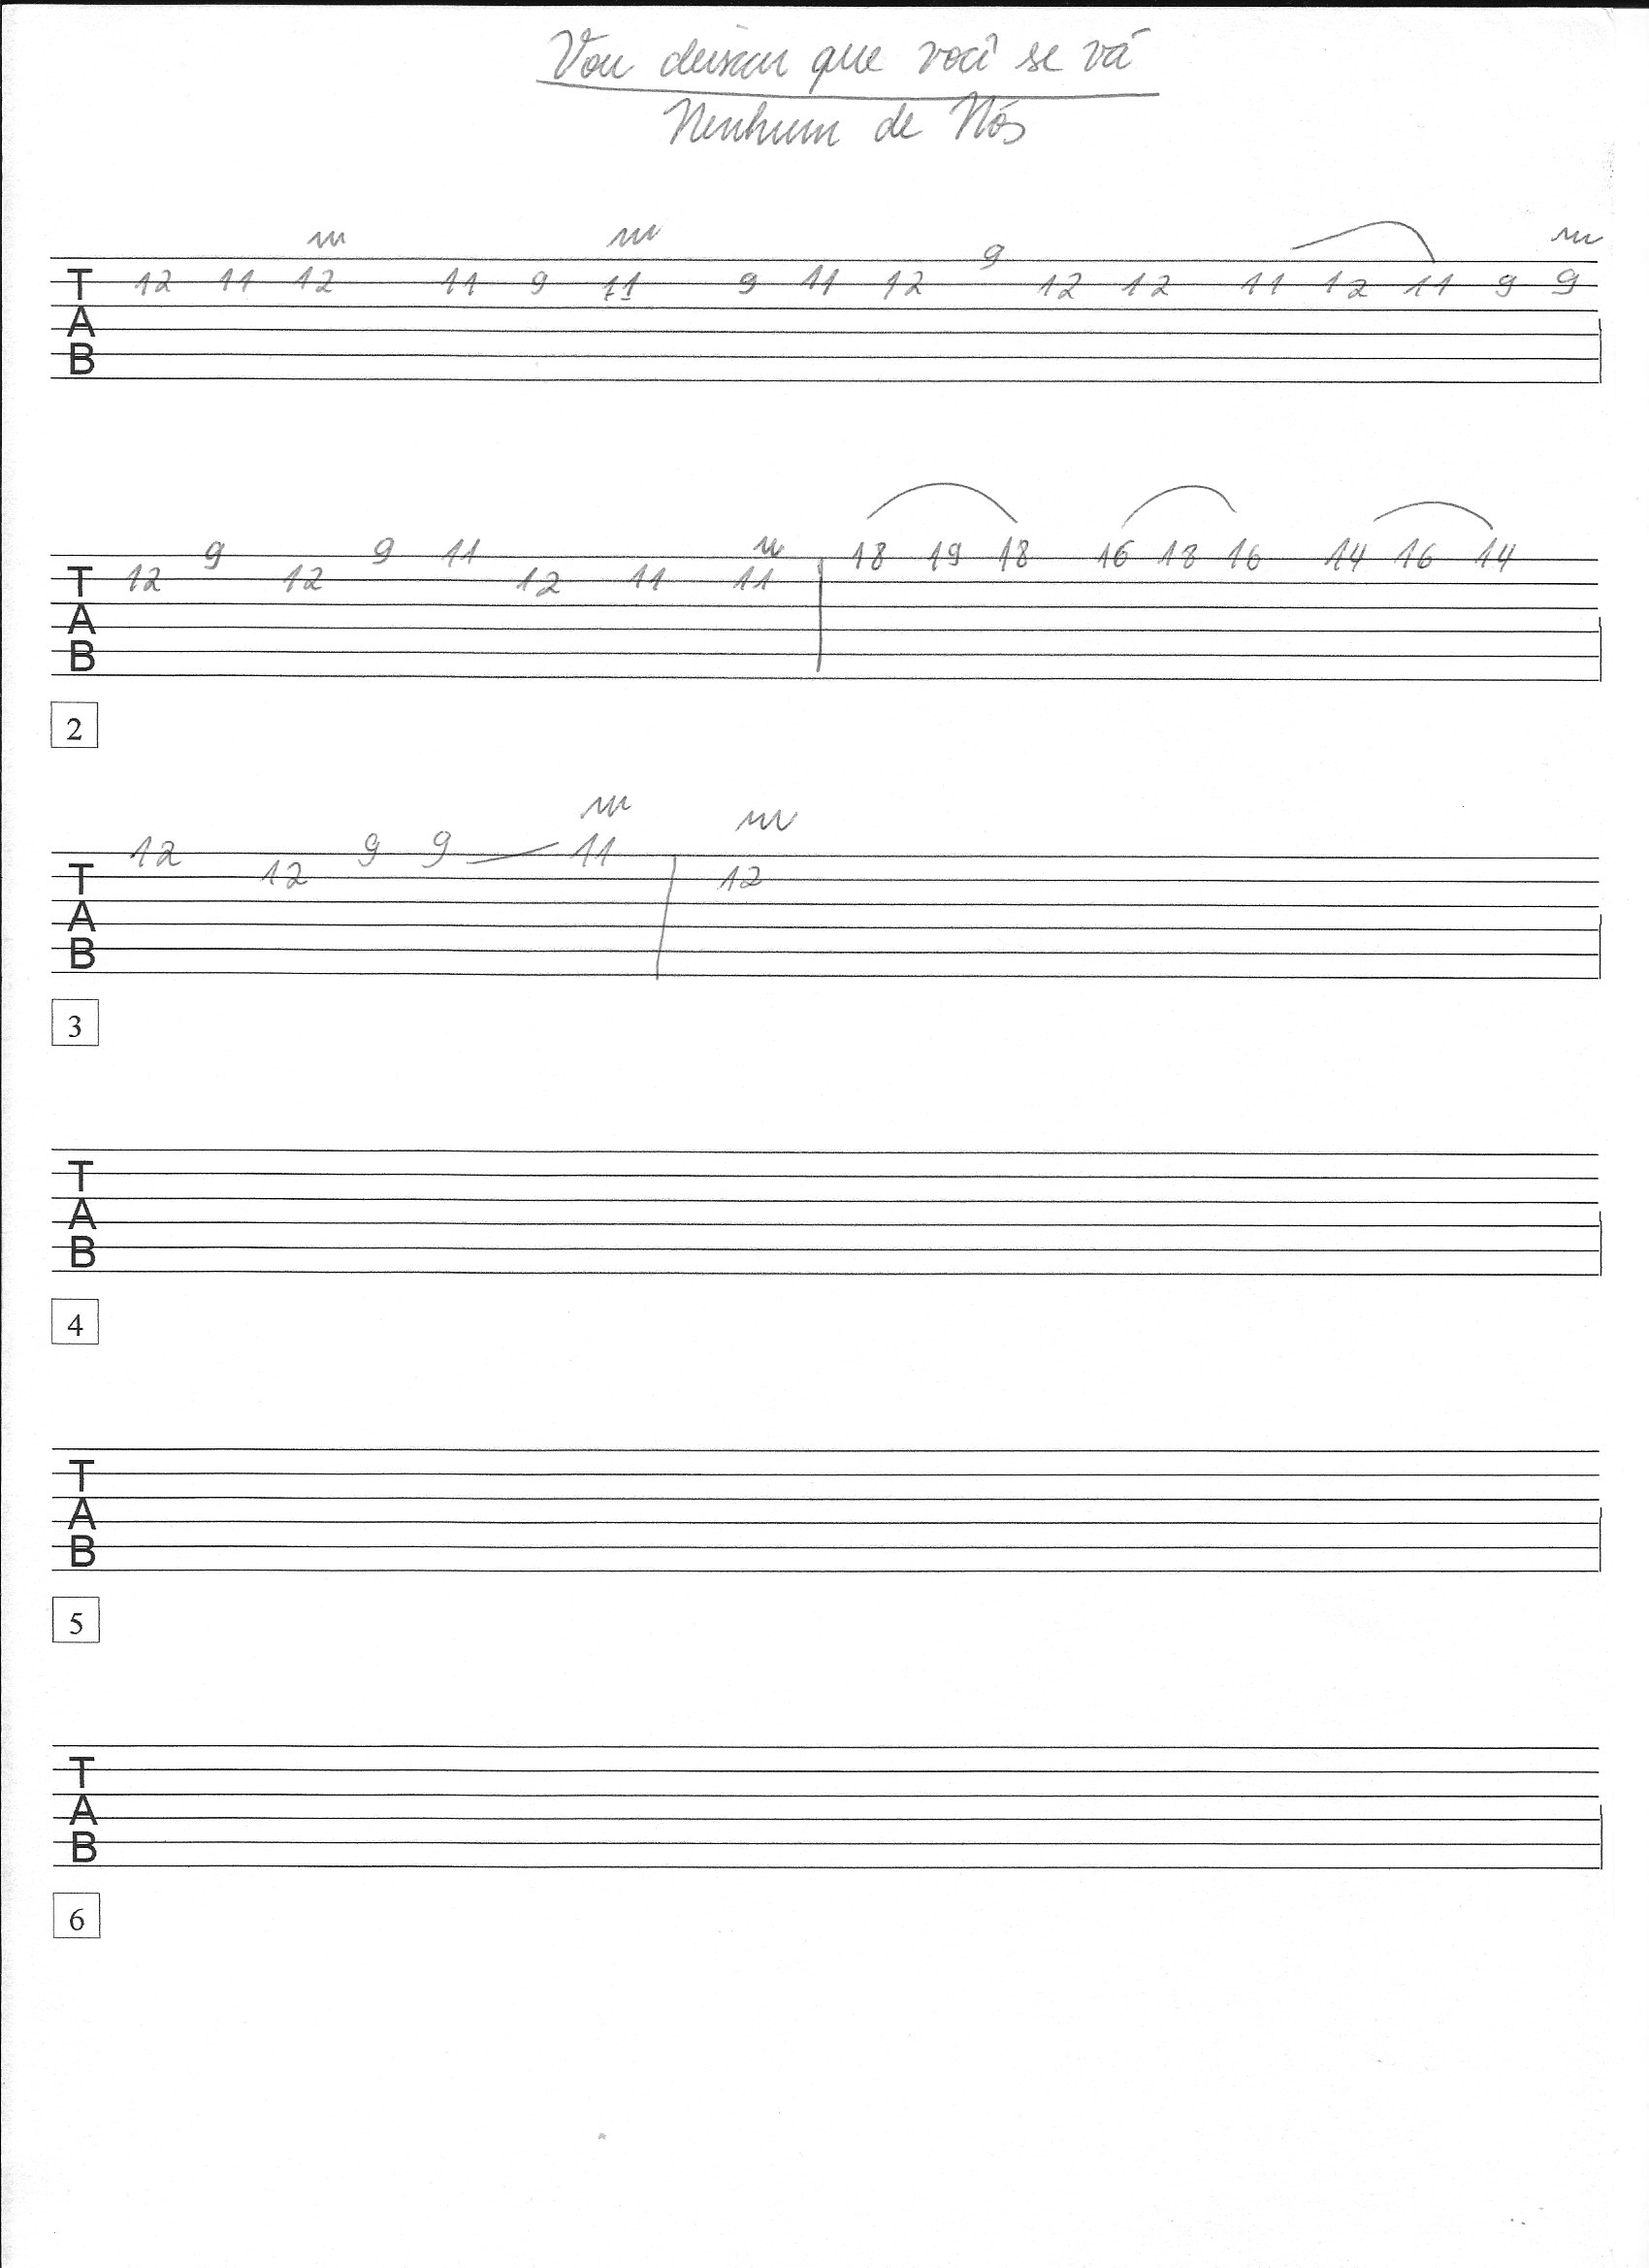 Vou deixar que você se vá
Nenhum de Nós
T
A
B
12 11 12 11 9 11 9 11 12 9 12 12 11 12 11 9 9
T
A
B
12 9 12 9 11 12 11 11 18 19 18 16 18 16 14 16 14
2
T
A
B
12 12 9 9 11 12
3
T
A
B
4
T
A
B
5
T
A
B
6